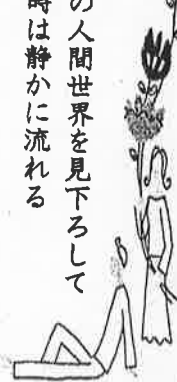 の人間世界を見下ろして
時は静かに流れる